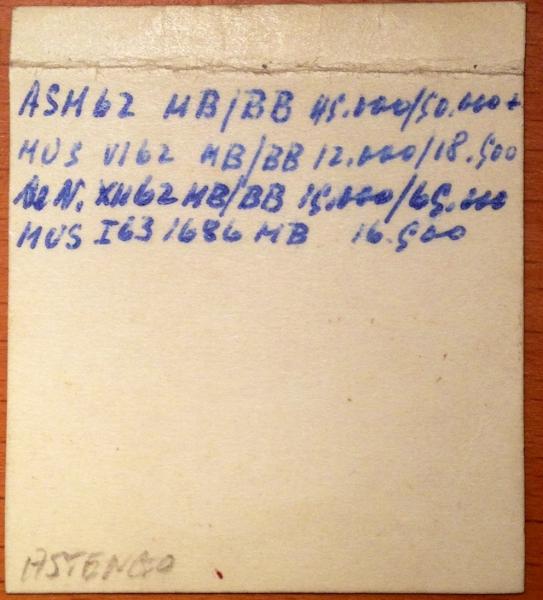 ASH 62 MB/BB 45.000/50.000+
MUS VI 62 MB/BB 12.000/18.500
De N. XII 62 MB/BB 15.000/65.000
MUS I 63 1686 MB 16.500
ASTENGO